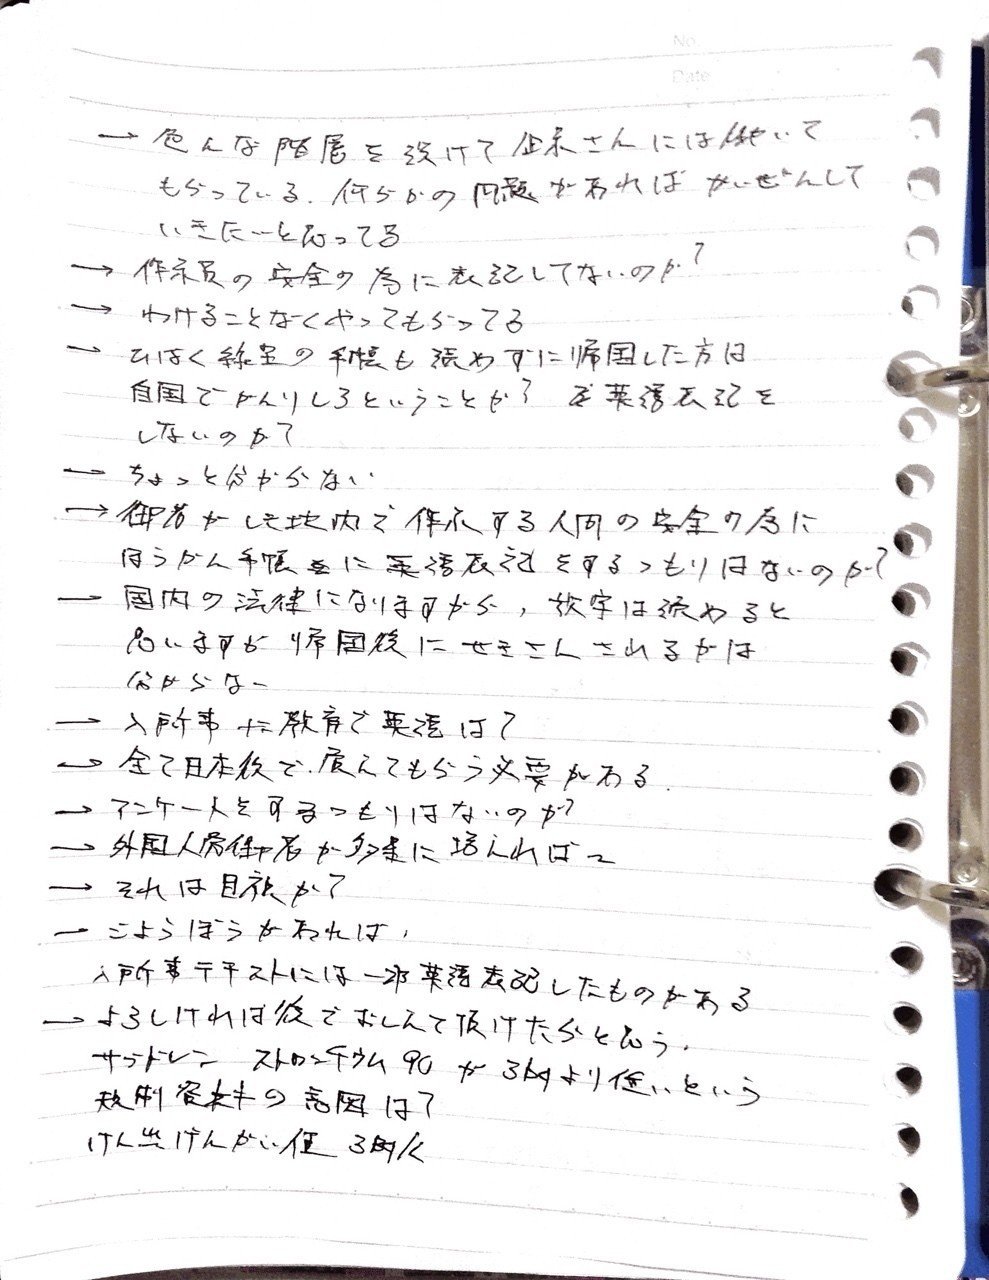 No.
Date
→ 色んな階層を設けて企業さんには働いて
もらっている. 何らかの問題があればかいぜんして
いきたいと思ってる
→ 作業員の安全の為に表記してないのか?
→ わけることなくやってもらってる
→ ひばく線量の手帳も読めずに帰国した方は
自国でかんりしろということか? 英語表記を
しないのか?
→ ちょっと分からない
→ 御者が 地内で作業する人間の安全の為に
ほうかん手帳 に英語表記をするつもりはないのか?
→ 国内の法律になりますから, 数字は読めると
思いますが帰国後に せきさんされるかは
分からない
→ 入所事 教育で英語は?
→ 全て日本後で. 覚えてもらう必要がある.
→ アンケートをするつもりはないのか?
→ 外国人労働者が多 に増えれば〜
→ それは目視か?
→ ごようぼうがあれば,
入所事テキストには一部英語表記したものがある
→ よろしければ後でおしえて頂けたらと思う,
サブドレン ストロンチウム90が3bqより低いという
規制 の 因は?
けん出げんかい値 3bq/L